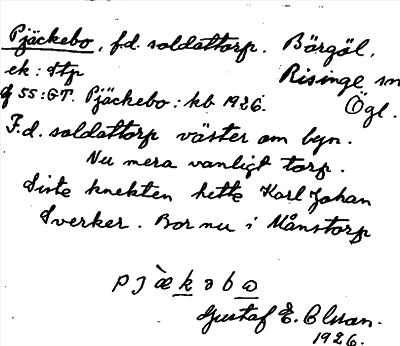 Pjäckebo, f.d. soldattorp. Börgöl,
ek: Stp Risinge sn
55:GT. Pjäckebo: kb 1926. Ögl.
F.d. soldattorp väster om byn.
Nu mera vanligt torp.
Siste knekten hette Karl Johan
Sverker. Bor nu i Månstorp
Gustaf E. Olsson.
1926.